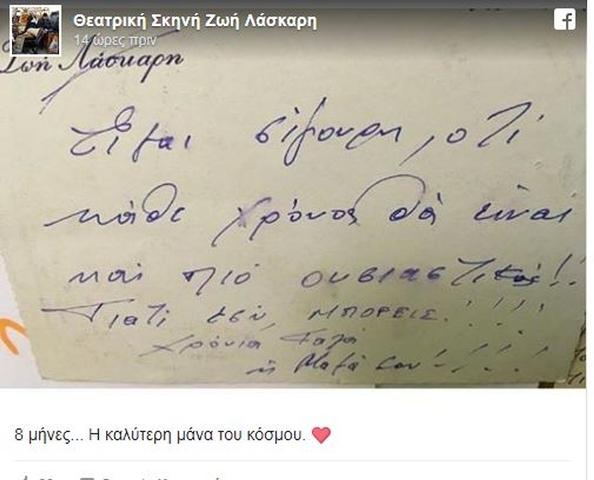 Θεατρική Σκηνή Ζωή Λάσκαρη
14 ώρες πριν
Ζωή Λάσκαρη
Είμαι σίγουρη, οτι
κάθε χρόνος θά είναι
και πιό ουσιαστικός!!
Γιατί εσύ, ΜΠΟΡΕΙΣ!!!!
Χρόνια Πολλά
η Μαμά σου!!!!
8 μήνες... Η καλύτερη μάνα του κόσμου.